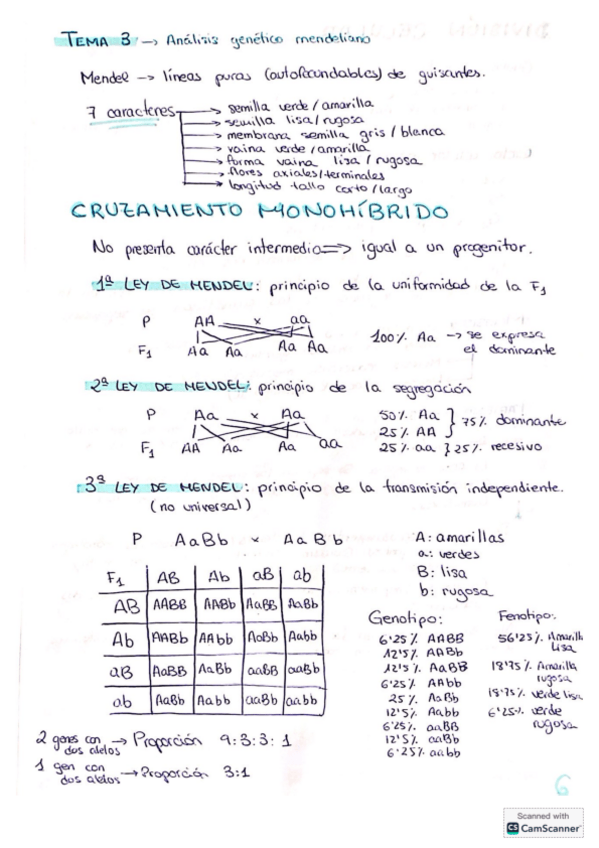 TEMA 3 → Análisis genético mendeliano
Mendel → líneas puras (autofecundables) de guisantes.
7 caracteres → semilla verde / amarilla
→ semilla lisa / rugosa
→ membrana semilla gris / blanca
→ vaina verde / amarilla
→ forma vaina lisa / rugosa
→ flores axiales / terminales
→ longitud tallo corto / largo
CRUZAMIENTO MONOHÍBRIDO
No presenta carácter intermedio => igual a un progenitor.
1ª LEY DE MENDEL: principio de la uniformidad de la F1
P AA x aa
F1 Aa Aa Aa Aa
100% Aa → se expresa
el dominante
2ª LEY DE MENDEL: principio de la segregación
P Aa x Aa
F1 AA Aa Aa aa
50% Aa } 75% dominante
25% AA
25% aa } 25% recesivo
3ª LEY DE MENDEL: principio de la transmisión independiente.
(no universal)
P AaBb x AaBb
A: amarillas
a: verdes
B: lisa
b: rugosa
F1 AB Ab aB ab
AB AABB AABb AaBB AaBb
Ab AABb AAbb AaBb Aabb
aB AaBB AaBb aaBB aaBb
ab AaBb Aabb aaBb aabb
Genotipo:
6'25% AABB
12'5% AABb
12'5% AaBB
6'25% AAbb
25% AaBb
12'5% Aabb
6'25% aaBB
12'5% aaBb
6'25% aabb
Fenotipo:
56'25% Amarilla
lisa
18'75% Amarilla
rugosa
18'75% verde lisa
6'25% verde
rugosa
2 genes con
dos alelos → Proporción 9:3:3:1
1 gen con
dos alelos → Proporción 3:1
6
Scanned with
CS CamScanner